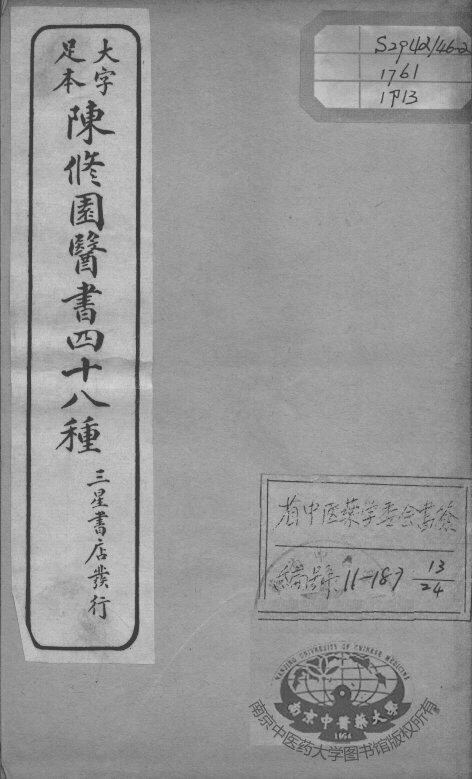 大字
足本
陳修園醫書四十八種
三星書店發行
S2942/46-2
1761
1P13
省中医藥学委会書簽
編号 11-187 13/24
NANJING UNIVERSITY OF CHINESE MEDICINE
南京中醫藥大學
1954
南京中医药大学图书馆版权所有